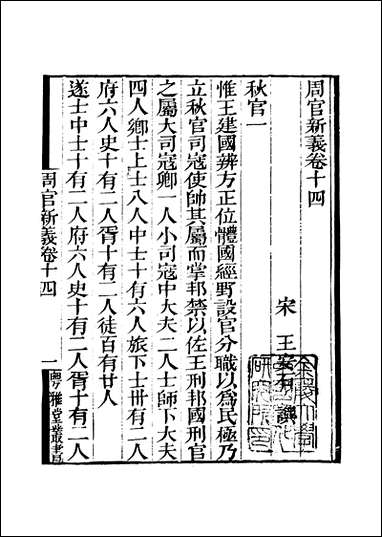 周官新義卷十四
宋 王安石 譔
秋官一
惟王建國辨方正位體國經野設官分職以爲民極乃
立秋官司寇使帥其屬而掌邦禁以佐王刑邦國刑官
之屬大司寇卿一人小司寇中大夫二人士師下大夫
四人鄉士上士八人中士十有六人旅下士卅有二人
府六人史十有二人胥十有二人徒百有廿人
遂士中士十有二人府六人史十有二人胥十有二人
周官新義卷十四
一
粵雅堂叢書